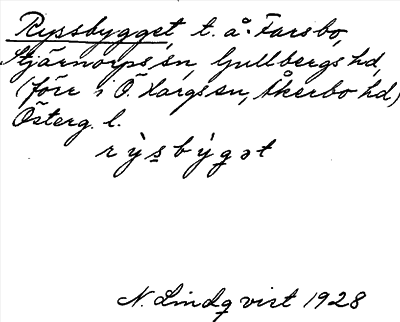 Ryssbygget, t. å. Farsbo,
Stjärnorps sn, Gullbergs hd,
(förr i Ö. Hargs sn, Åkerbo hd)
Österg. l.
rỳsbỳgət
N. Lindqvist 1928